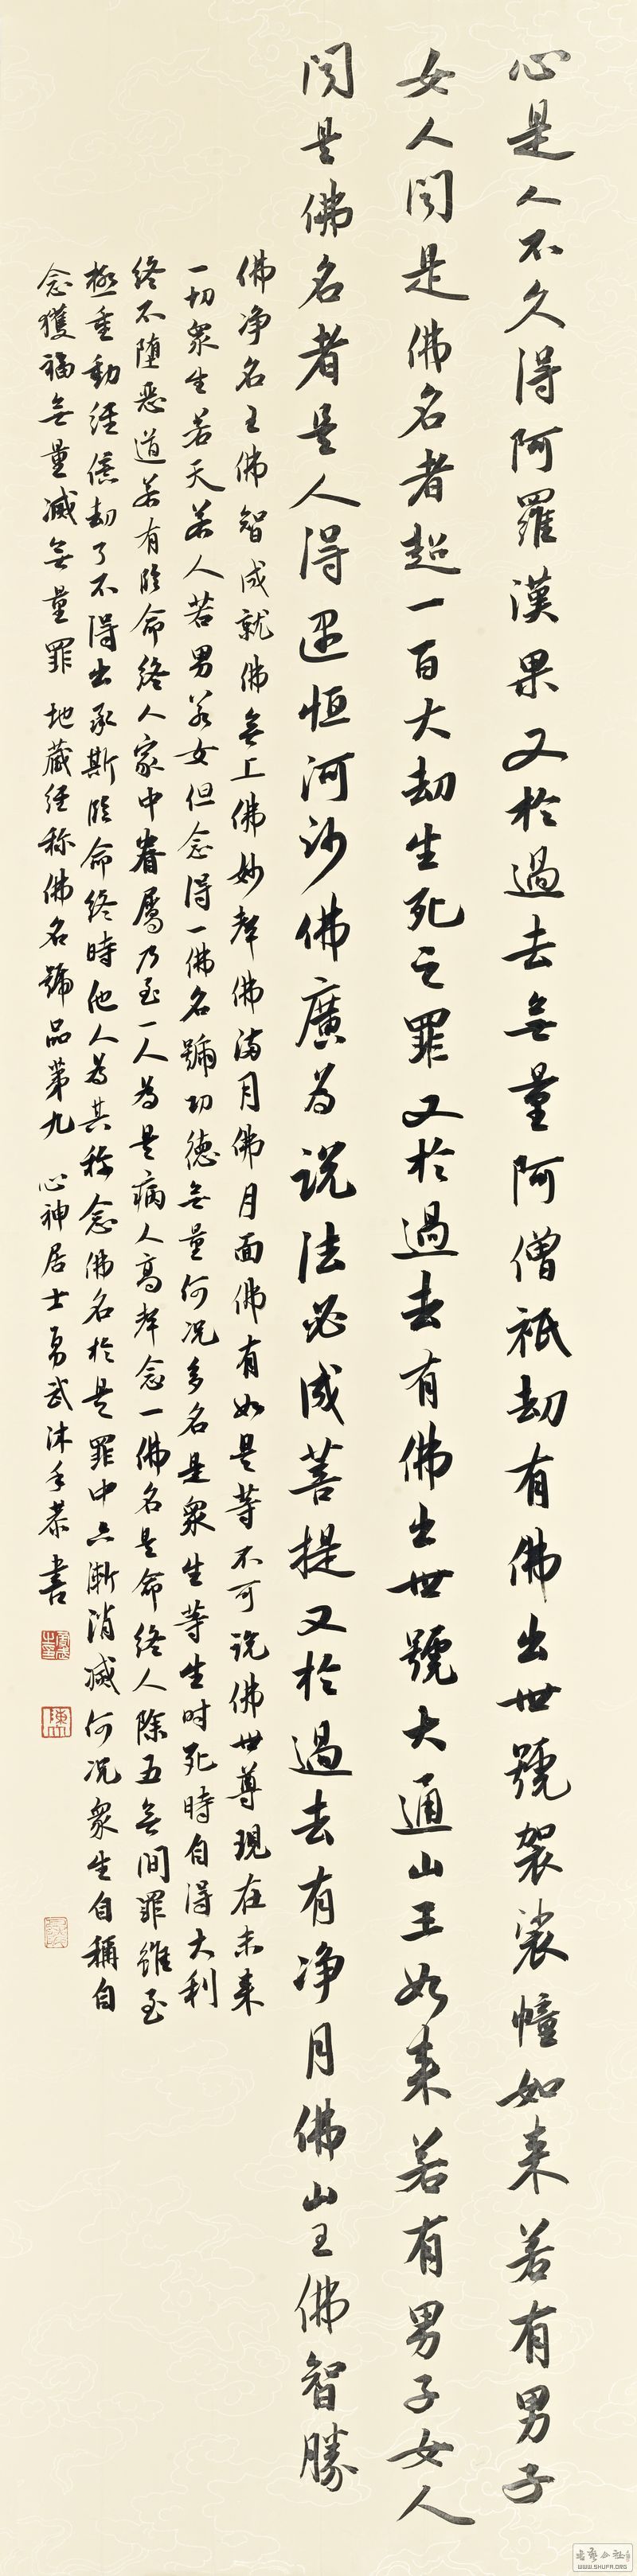 心是人不久得阿羅漢果又於過去無量阿僧祇劫有佛出世號袈裟幢如来若有男子
女人聞是佛名者超一百大劫生死之罪又於過去有佛出世號大通山王如来若有男子女人
聞是佛名者是人得遇恒河沙佛廣為说法必成菩提又於過去有净月佛山王佛智勝
佛净名王佛智成就佛無上佛妙聲佛满月佛月面佛有如是等不可说佛世尊現在未来
一切衆生若天若人若男若女但念得一佛名號功德無量何况多名是衆生等生时死時自得大利
终不堕恶道若有临命终人家中眷屬乃至一人為是病人高聲念一佛名是命终人除五無间罪雖至
極重動經億劫了不得出承斯临命终時他人為其称念佛名於是罪中亦漸消滅何况衆生自稱自
念獲福無量滅無量罪 地藏经称佛名號品第九 心神居士勇武沐手恭書
WWW.SHUFA.ORG